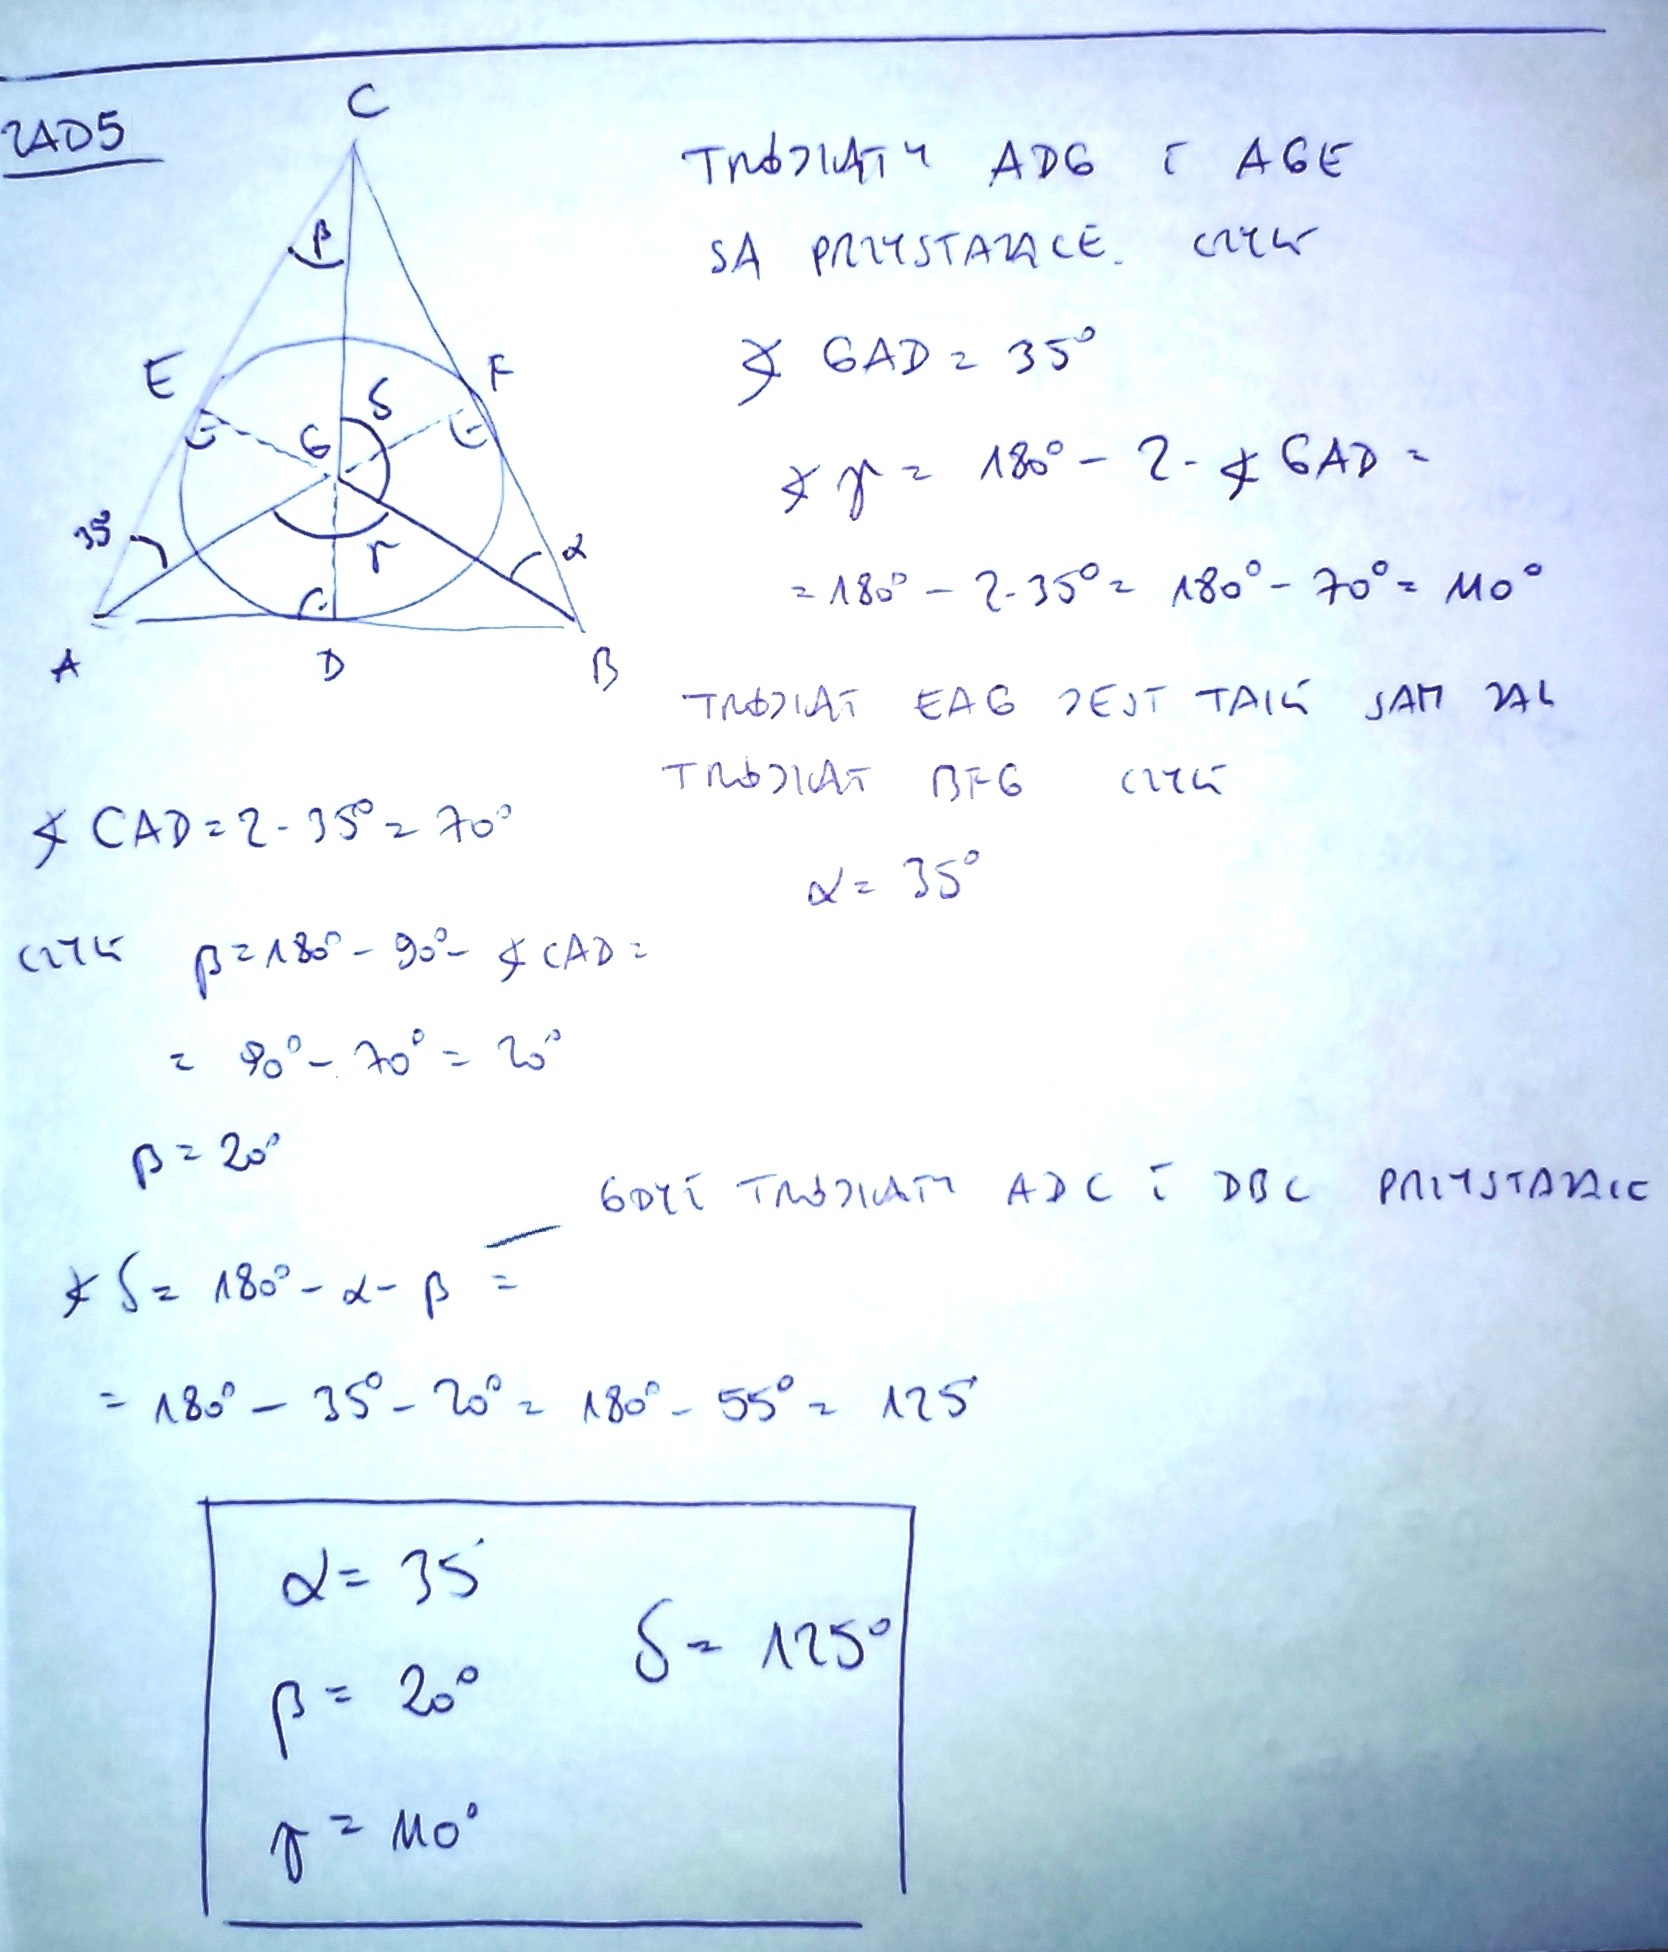 ZAD5
C
β
E
F
δ
G
35°
α
γ
A
D
B
TRÓJKĄTY ADG I AGE
SĄ PRZYSTAJĄCE. CZYLI
∢ GAD = 35°
∢ γ = 180° - 2 · ∢ GAD =
= 180° - 2 · 35° = 180° - 70° = 110°
TRÓJKĄT EAG JEST TAKI SAM JAK
TRÓJKĄT BFG CZYLI
α = 35°
∢ CAD = 2 · 35° = 70°
CZYLI β = 180° - 90° - ∢ CAD =
= 90° - 70° = 20°
β = 20°
GDYŻ TRÓJKĄTY ADC I DBC PRZYSTAJĄCE
∢ δ = 180° - α - β =
= 180° - 35° - 20° = 180° - 55° = 125°
α = 35°
δ = 125°
β = 20°
γ = 110°